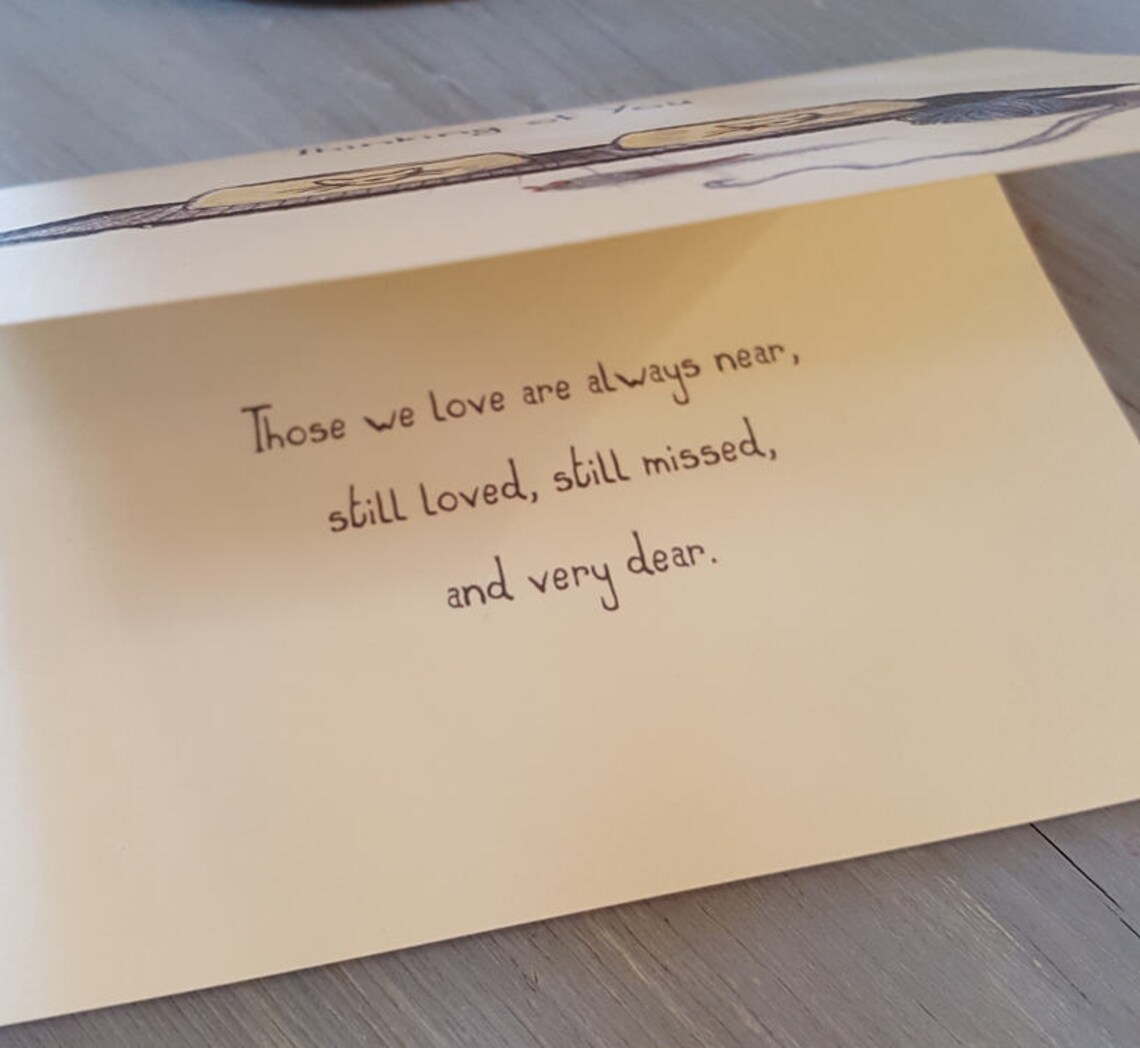 Thinking of You
Those we love are always near,
still loved, still missed,
and very dear.